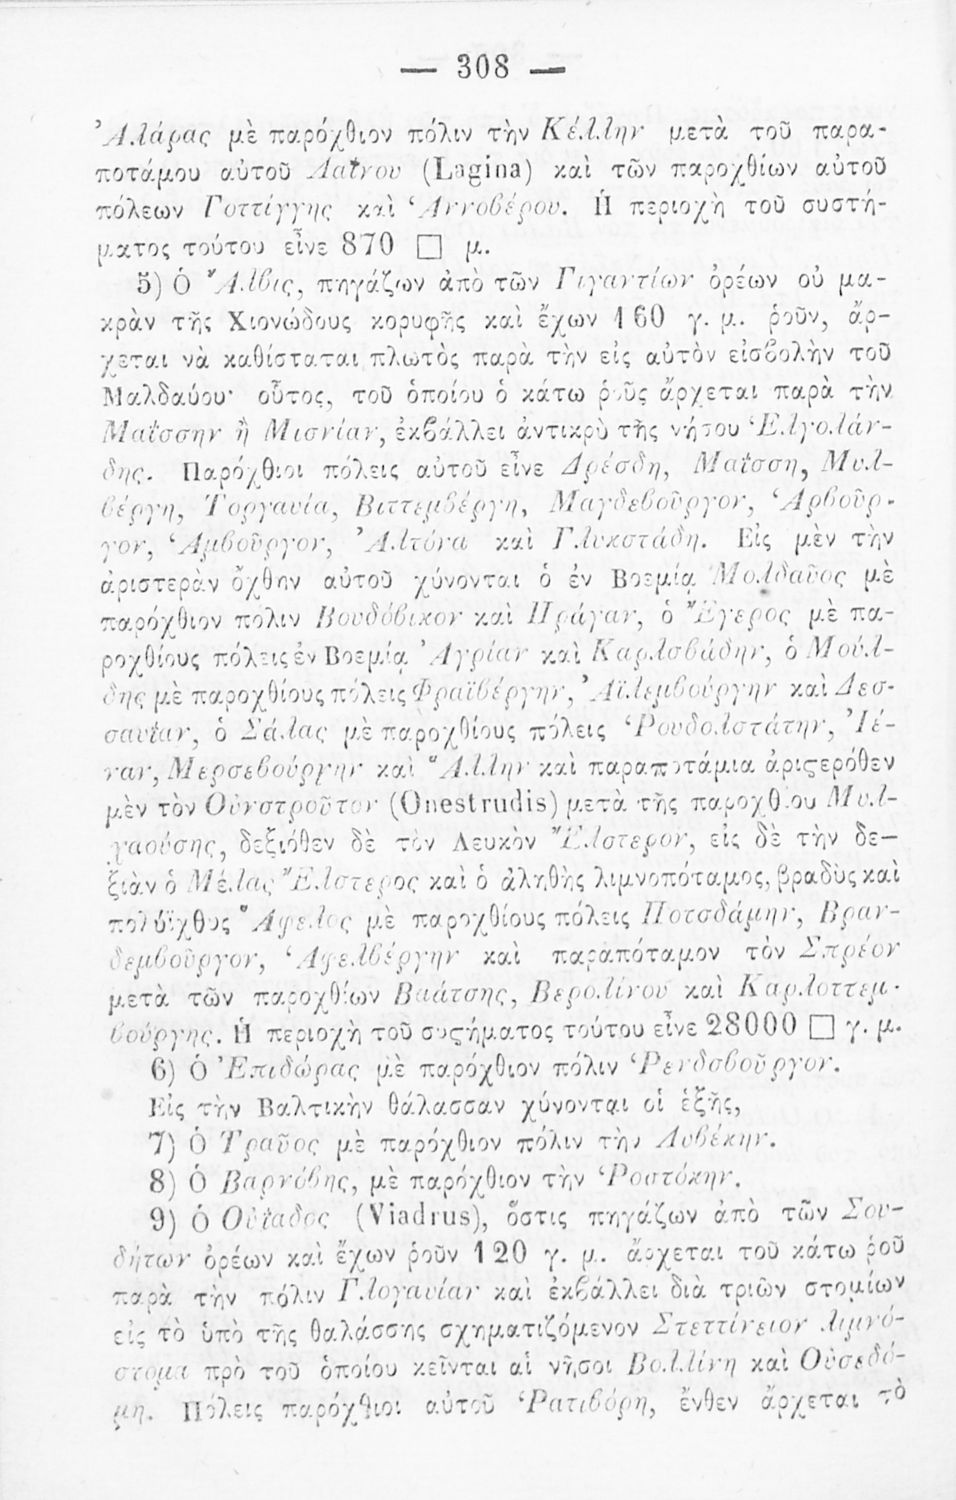 — 308 —
Ἀλάρας μὲ παρόχθιον πόλιν τὴν Κέλλην μετὰ τοῦ παρα-
ποτάμου αὐτοῦ Λαΐνου (Lagina) καὶ τῶν παροχθίων αὐτοῦ
πόλεων Γοττίγγης καὶ Ἁννοβέρου. Ἡ περιοχὴ τοῦ συστή-
ματος τούτου εἶνε 870 □ μ.
5) Ὁ Ἄλβις, πηγάζων ἀπὸ τῶν Γιγαντίων ὀρέων οὐ μα-
κρὰν τῆς Χιονώδους κορυφῆς καὶ ἔχων 160 γ. μ. ῥοῦν, ἄρ-
χεται νὰ καθίσταται πλωτὸς παρὰ τὴν εἰς αὐτὸν εἰσβολὴν τοῦ
Μαλδαύου· οὗτος, τοῦ ὁποίου ὁ κάτω ῥοῦς ἄρχεται παρὰ τὴν
Μαΐσσην ἢ Μισνίαν, ἐκβάλλει ἀντικρὺ τῆς νήσου Ἑλγολάν-
δης. Παρόχθιοι πόλεις αὐτοῦ εἶνε Δρέσδη, Μαΐσση, Μυλ-
βέργη, Τοργαυία, Βιττεμβέργη, Μαγδεβοῦργον, Ἁρβοῦρ-
γον, Ἁμβοῦργον, Ἀλτόνα καὶ Γλυκστάδη. Εἰς μὲν τὴν
ἀριστερὰν ὄχθην αὐτοῦ χύνονται ὁ ἐν Βοεμίᾳ Μολδαῦος μὲ
παρόχθιον πόλιν Βουδόβικον καὶ Πράγαν, ὁ Ἔγερος μὲ πα-
ροχθίους πόλεις ἐν Βοεμίᾳ Ἀγρίαν καὶ Καρλσβάδην, ὁ Μούλ-
δης μὲ παροχθίους πόλεις Φραϊβέργην, Ἀϊλεμβούργην καὶ Δεσ-
σαυΐαν, ὁ Σάλας μὲ παροχθίους πόλεις Ῥουδολστάτην, Ἰέ-
ναν, Μερσεβούργην καὶ Ἅλλην καὶ παραποτάμια ἀριςερόθεν
μὲν τὸν Οὐνστροῦτον (Onestrudis) μετὰ τῆς παροχθίου Μυλ-
χαούσης, δεξιόθεν δὲ τὸν Λευκὸν Ἔλστερον, εἰς δὲ τὴν δε-
ξιὰν ὁ Μέλας Ἔλστερος καὶ ὁ ἀληθὴς λιμνοπόταμος, βραδὺς καὶ
πολύϊχθυς Ἅφελος μὲ παροχθίους πόλεις Ποτσδάμην, Βραν-
δεμβοῦργον, Ἁφελβέργην καὶ παραπόταμον τὸν Σπρέον
μετὰ τῶν παροχθίων Βαάτσης, Βερολίνου καὶ Καρλοττεμ-
βούργης. Ἡ περιοχὴ τοῦ συςήματος τούτου εἶνε 28000 □ γ. μ.
6) Ὁ Ἐπιδώρας μὲ παρόχθιον πόλιν Ῥενδσβοῦργον.
Εἰς τὴν Βαλτικὴν θάλασσαν χύνονται οἱ ἑξῆς,
7) Ὁ Τραῦος μὲ παρόχθιον πόλιν τὴν Λυβέκην.
8) Ὁ Βαρνόβης, μὲ παρόχθιον τὴν Ῥοστόκην.
9) Ὁ Οὐΐαδος (Viadrus), ὅστις πηγάζων ἀπὸ τῶν Σου-
δήτων ὀρέων καὶ ἔχων ῥοῦν 120 γ. μ. ἄρχεται τοῦ κάτω ῥοῦ
παρὰ τὴν πόλιν Γλογαυίαν καὶ ἐκβάλλει διὰ τριῶν στομίων
εἰς τὸ ὑπὸ τῆς θαλάσσης σχηματιζόμενον Στεττίνειον λιμνό-
στομα πρὸ τοῦ ὁποίου κεῖνται αἱ νῆσοι Βολλίνη καὶ Οὐσεδό-
μη. Πόλεις παρόχθιοι αὐτοῦ Ῥατιβόρη, ἔνθεν ἄρχεται τὸ